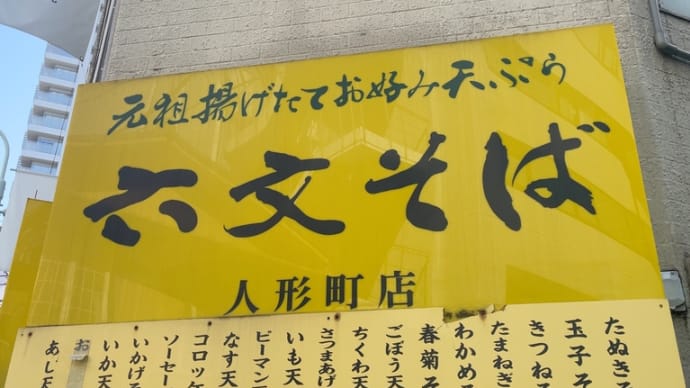 元祖揚げたてお好み天ぷら
六文そば
人形町店
たぬき
玉子そ
きつね
たまねぎ
わかめ
春菊そ
ごぼう天
ちくわ天
さつまあげ
いも天
ピーマン
なす天
コロッケ
ソーセー
いかげ
いか天
お
あじ天